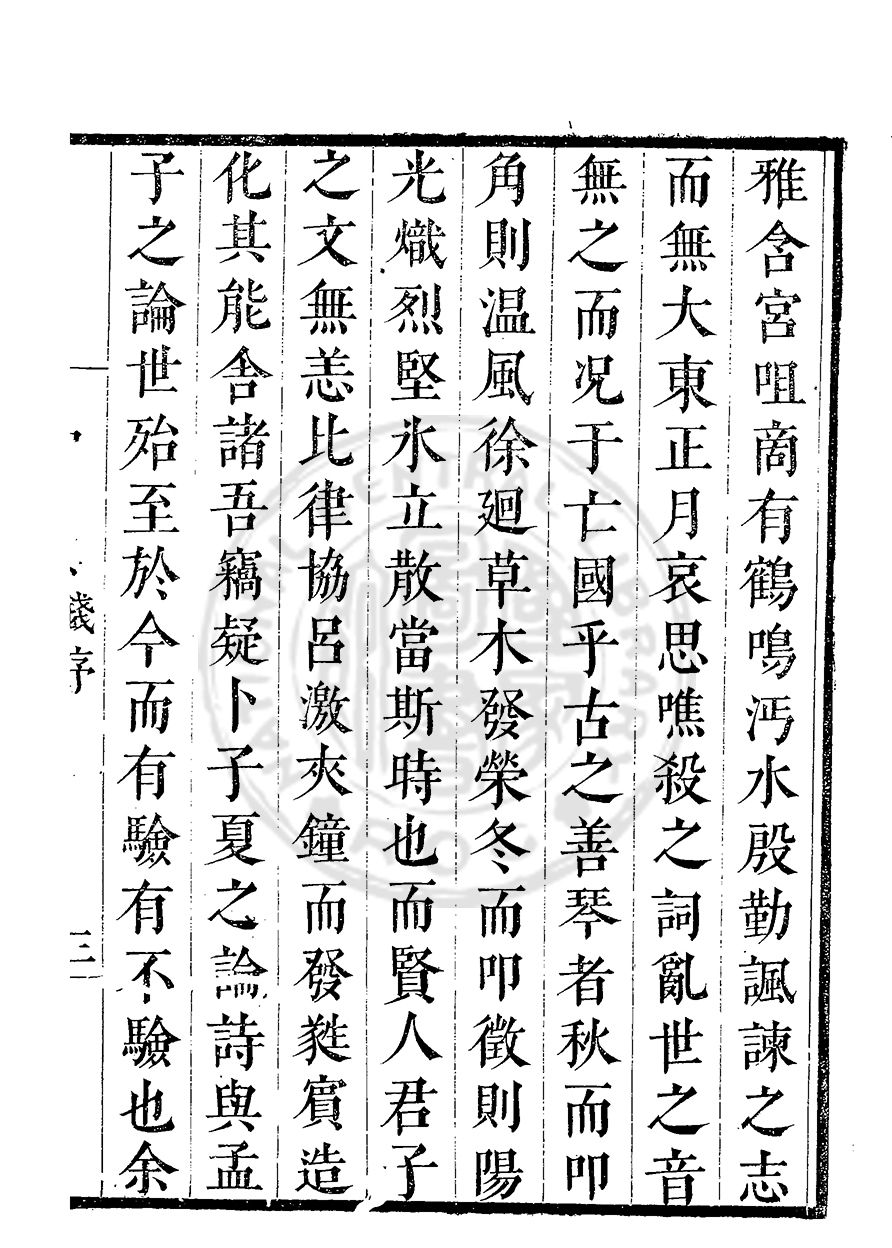 雅含宮咀商有鶴鳴沔水殷勤諷諫之志
而無大東正月哀思噍殺之詞亂世之音
無之而况于亡國乎古之善琴者秋而叩
角則温風徐廻草木發榮冬而叩徵則陽
光熾烈堅氷立散當斯時也而賢人君子
之文無恙比律協呂激夾鐘而發蕤賓造
化其能舍諸吾竊疑卜子夏之論詩與孟
子之論世殆至於今而有驗有不驗也余
箋序
三